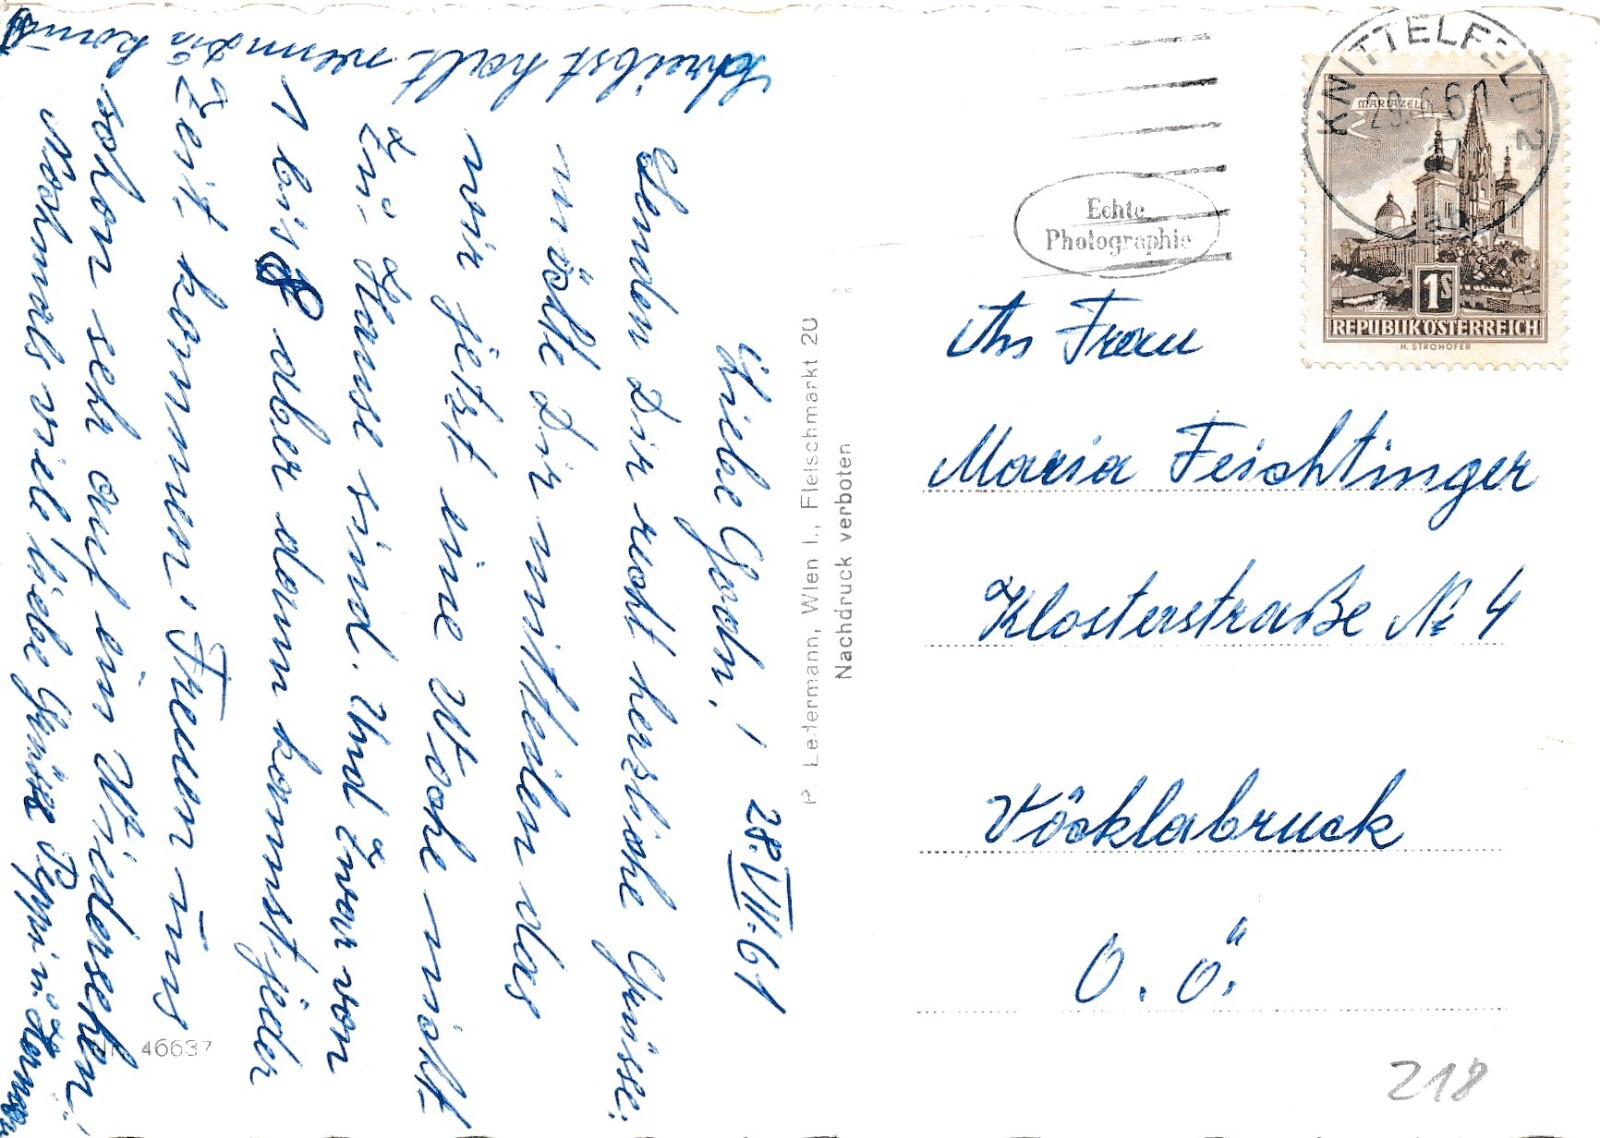 28.VII.61
Liebe Godn!
Senden Dir recht herzliche Grüsse.
möcht Dir mitteilen das
wir jetzt eine Woche nicht
zu Hause sind. Und zwar von
1 bis 8 aber dann kannst jeder
Zeit kommen. Freuen uns
schon sehr auf ein Wiedersehen!
Nochmals viel liebe Grüsse Peppi u.
Schreibst halt wenn du kommst
P. Ledermann, Wien I., Fleischmarkt 20
Nachdruck verboten
Nr. 46637
Echte
Photographie
KNITTELFELD 2
MARIAZELL
1S
REPUBLIK ÖSTERREICH
H. STROHOFER
An Frau
Maria Feichtinger
Klosterstraße № 4
Vöcklabruck
O.Ö.
218